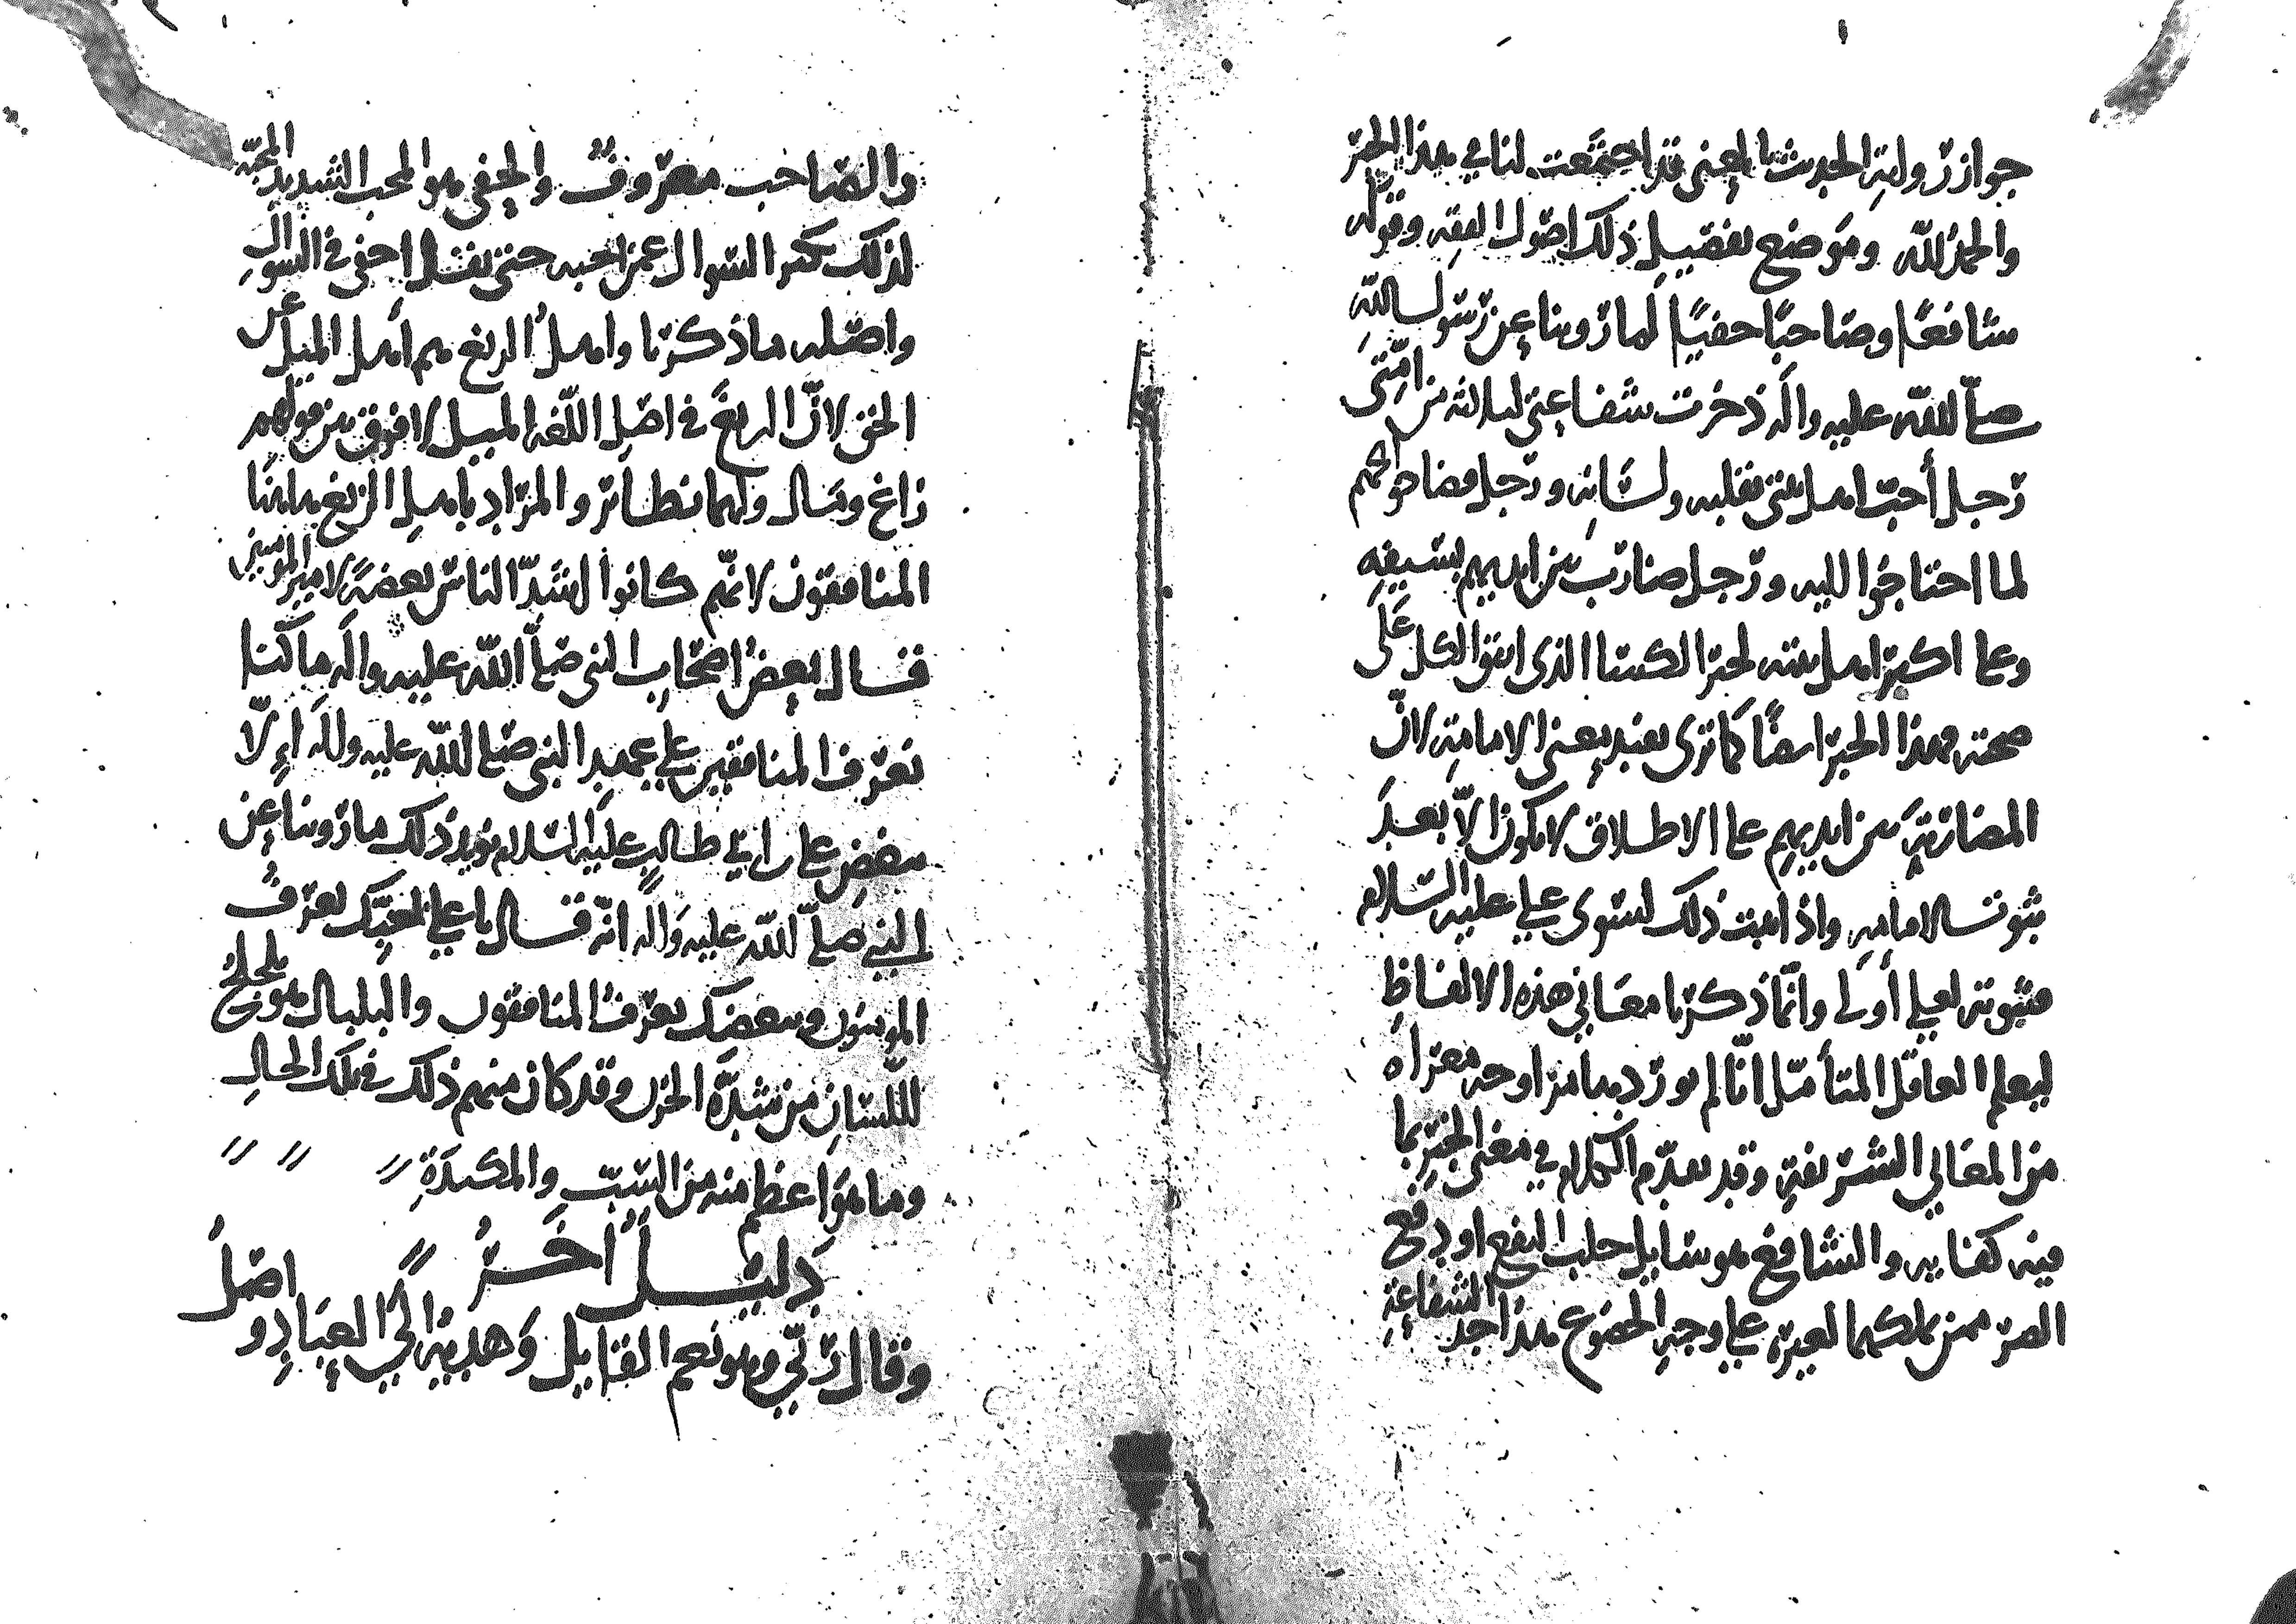 جواز رواية الحديث بالمعنى قد اجتمعت لنا في هذا الخبر
والحمد لله وموضع تفصيل ذلك اصول الفقه وقوله
شافعًا وصاحبًا حفيًا لما روينا عن رسول الله
صلى الله عليه واله ذخرت شفاعتي لثلاثة من امتي
رجل أحبّ اهل بيتي بقلبه ولسانه ورجل قضا حوائجهم
لما احتاجوا اليه ورجل ضارب بين ايديهم بسيفه
وعلى اكبر اهل بيته لخبر الكسا الذي اتفق الكل على
صحته فهذا الخبر ايضًا كما ترى يفيد معنى الامامة لانّ
المضاربة بين ايديهم على الاطلاق لا يكون الاّ بعد
ثبوت الامامة واذا ثبت ذلك لسوى علي عليه السلام
فثبوته لعلي أولى وانّما ذكرنا معاني هذه الالفاظ
ليعلم العاقل المتأمّل انّا لم نورد بها من اوجه معراه
من المعاني الشريفة وقد تقدّم الكلام في معنى الخبر بما
فيه كفايه والشافع هو سايل جلب النفع او دفع
الضر ممن يملكهما لغيره على وجه الخضوع هذا حد الشفاعة
والصاحب معروفٌ والحفي هو المحب الشديد المحبّه
لذلك يكثر السوال عمن يحبه حتى يقال احفى في السوال
واصله ما ذكرنا واهلُ الزيغ هم أهل الميل عن
الحق لانّ الزيغَ في اصل اللّغه الميل لا فرق بين قولهم
زاغ ومال ولهما نظائر والمراد بأهل الزيغ هاهنا
المنافقون لانّهم كانوا اشدّ الناس بعضةً لامير المومنين
فقال بعض اصحاب النبي صلّى الله عليه واله ما كنا
نعرف المنافقين على عهد النبي صلى الله عليه واله إلاّ
ببغض علي بن ابي طالب عليه السلام يؤيد ذلك ما روينا عن
النبي صلّى الله عليه واله انّه قال يا علي بحبّك يعرفُ
المومنون وببغضك يعرف المنافقون والبلبال هو تلجلجُ
اللسان من شدّة الحزن وقد كان منهم ذلك في تلك الحال
وما هو اعظم منه من السبّ والمكيدة
دليلٌ آخرُ
وقال ربّي وهو نعم القايل وهديه الى العباد واصلُ